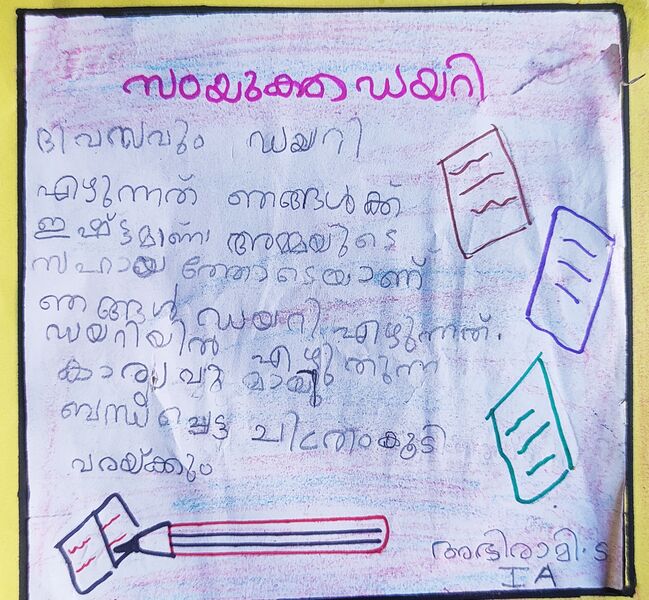 സംയുക്ത ഡയറി
ദിവസവും ഡയറി
എഴുന്നത് ഞങ്ങൾക്ക്
ഇഷ്ട്ടമാണ് അമ്മയുടെ
സഹായ ത്തോടെയാണ്
ഞങ്ങൾ ഡയറി എഴുന്നത്.
ഡയറിയിൽ എഴുതുന്ന
കാര്യവു മായി
ബന്ധപ്പെട്ട ചിത്രംകൂടി
വരയ്ക്കും
അഭിരാമി. ട
I A